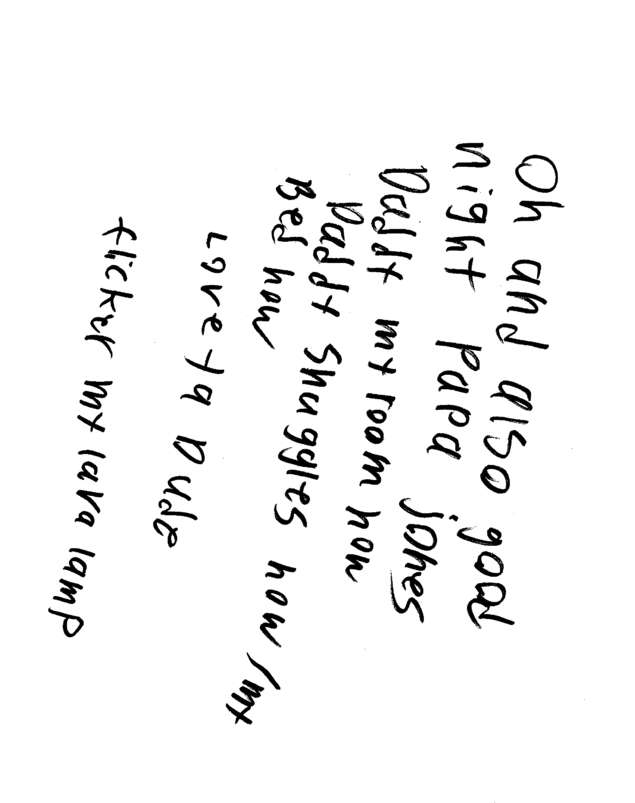 Oh and also good
night Papa jones
Daddy my room how
Daddy Snuggles how/my
Bed how
Love ya Dude
flicker my lava lamp